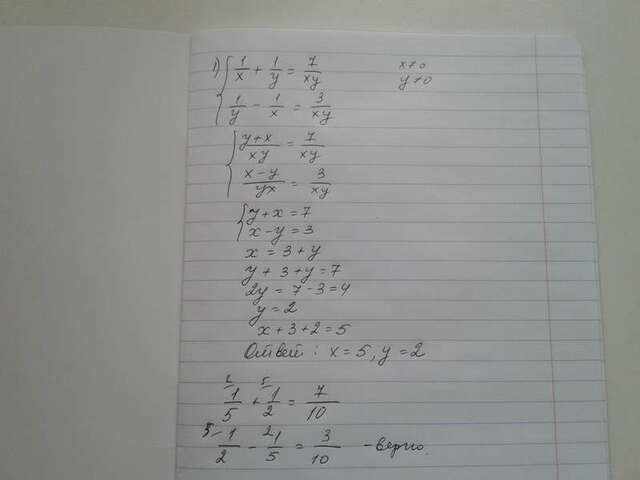 1) { 1/x + 1/y = 7/xy   x≠0
y≠0
1/y - 1/x = 3/xy
{ y+x/xy = 7/xy
x-y/yx = 3/xy
{ y+x=7
x-y=3
x = 3+y
y+3+y=7
2y = 7-3=4
y=2
x+3+2=5
Ответ: x=5, y=2
2 5
1/5 + 1/2 = 7/10
5 1/2 - 2 1/5 = 3/10 - верно.